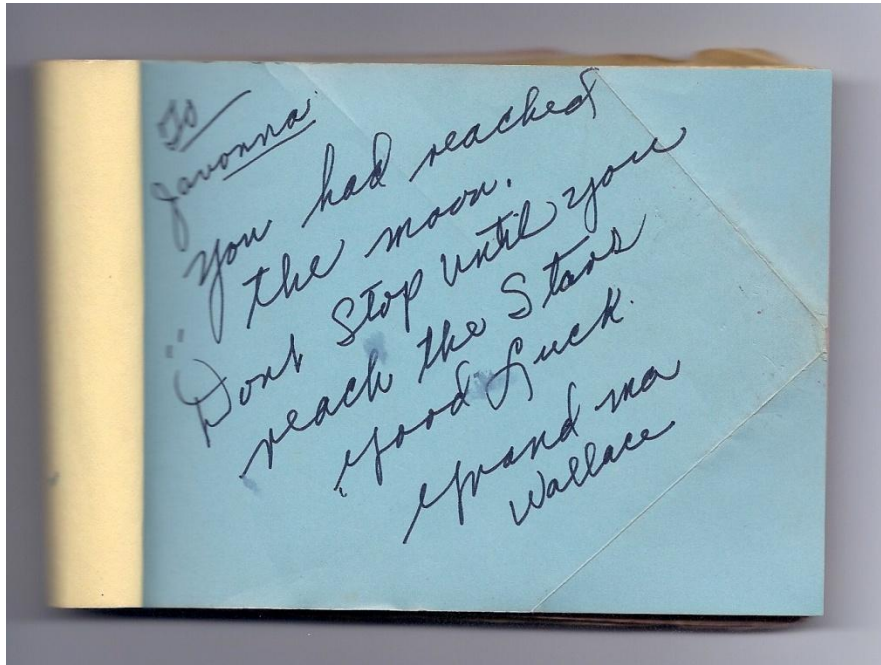 To
Javonna
You had reached
the moon.
Dont Stop Until you
reach the Stars
Good Luck.
Grand ma
Wallace